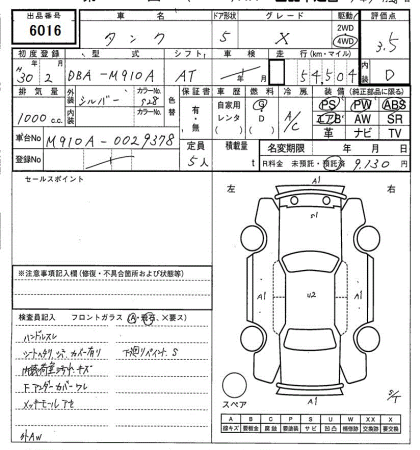 出品番号
6016
車名
タンク
ドア形状
5
グレード
X
駆動
2WD
4WD
評価点
3.5
初度登録
H30 2
型式
DBA-M910A
シフト
AT
車検
年 月
走行 (km・マイル)
54,504
内装
D
排気量
1000 c.c.
外装
シルバー
カラーNo.
S28
内装
カラーNo.
色替
保証書
有・無
車歴
自家用
レンタ
( )
燃料
G
D
( )
冷房
A/C
装備 (純正部品に限る)
PS PW ABS
エアB AW SR
革 ナビ TV
車台No
M910A-0029378
登録No
定員
5人
積載量
t
名変期限
年 月 日
R料金 未預託・預託済 9,130 円
セールスポイント
左
右
A1
S1
A1
U2
A1
A1
スペア
S/T
※注意事項記入欄 (修復・不具合箇所および状態等)
検査員記入 フロントガラス (A・飛石、×要ス)
ハンドルスレ
シートヘタリ、シワ、カバー有り
下廻りペイント、S
内装荷室キズ
F アンダーカバーワレ
メッキモールアセ
外AW
A B C P S U W X XX X
線キズ 要板金 腐蝕 要塗装 サビ 凹凸 補修跡 交換跡 要交換